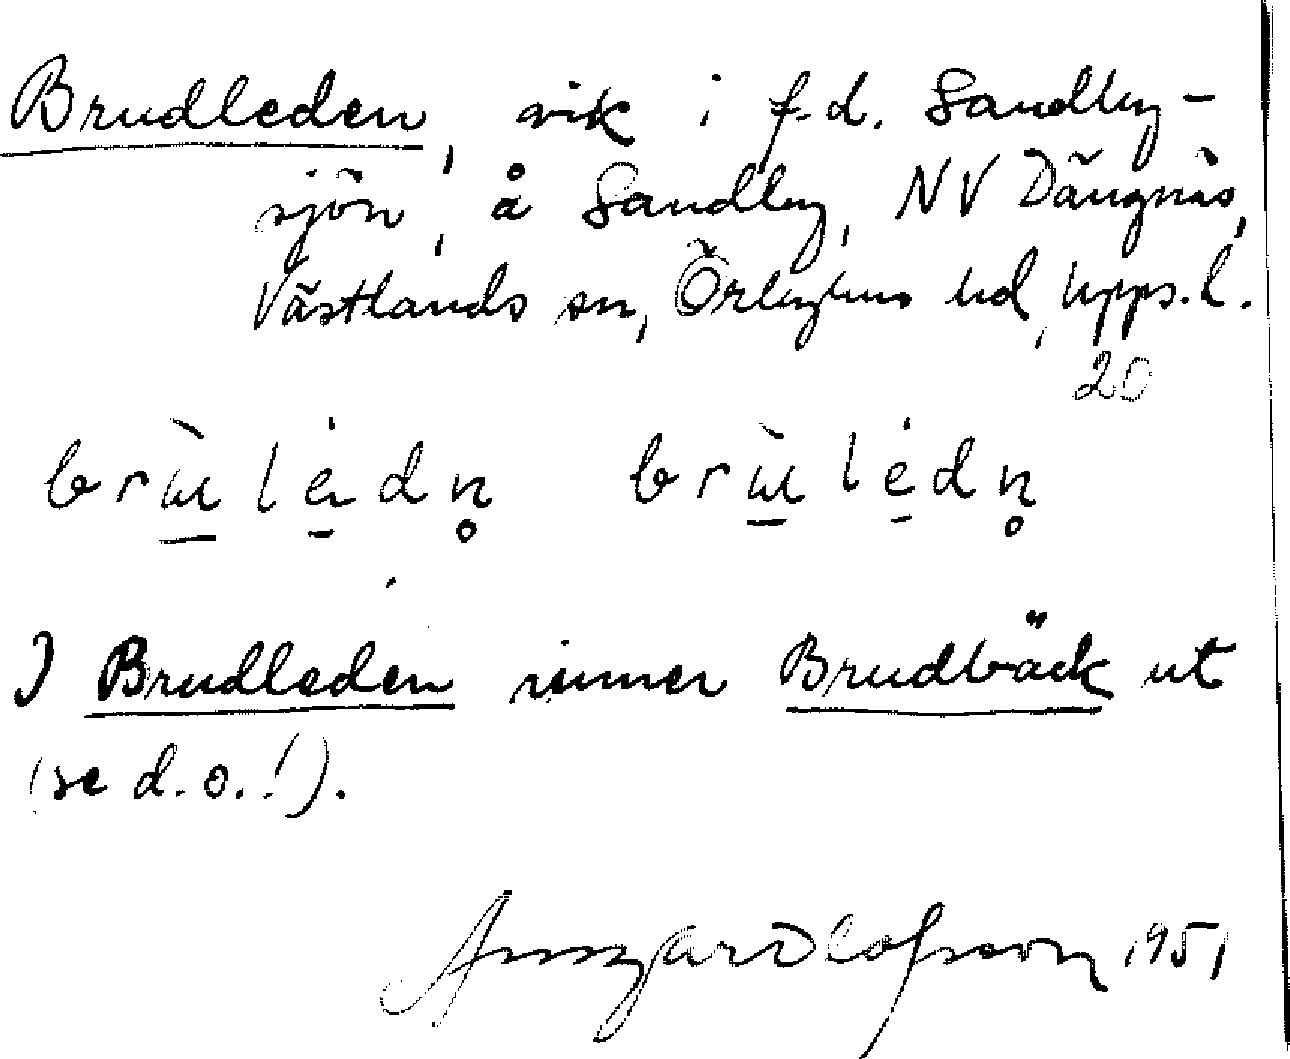 Brudleden, vik i f.d. Sandby-
sjön, å Sandby, NV Dängnäs,
Västlands sn, Örbyhus hd, Upps.l.
20
brùlédn̥ brùlédn̥
I Brudleden rinner Brudbäck ut
(se d.o.!).
Ansgar Olofsson 1951